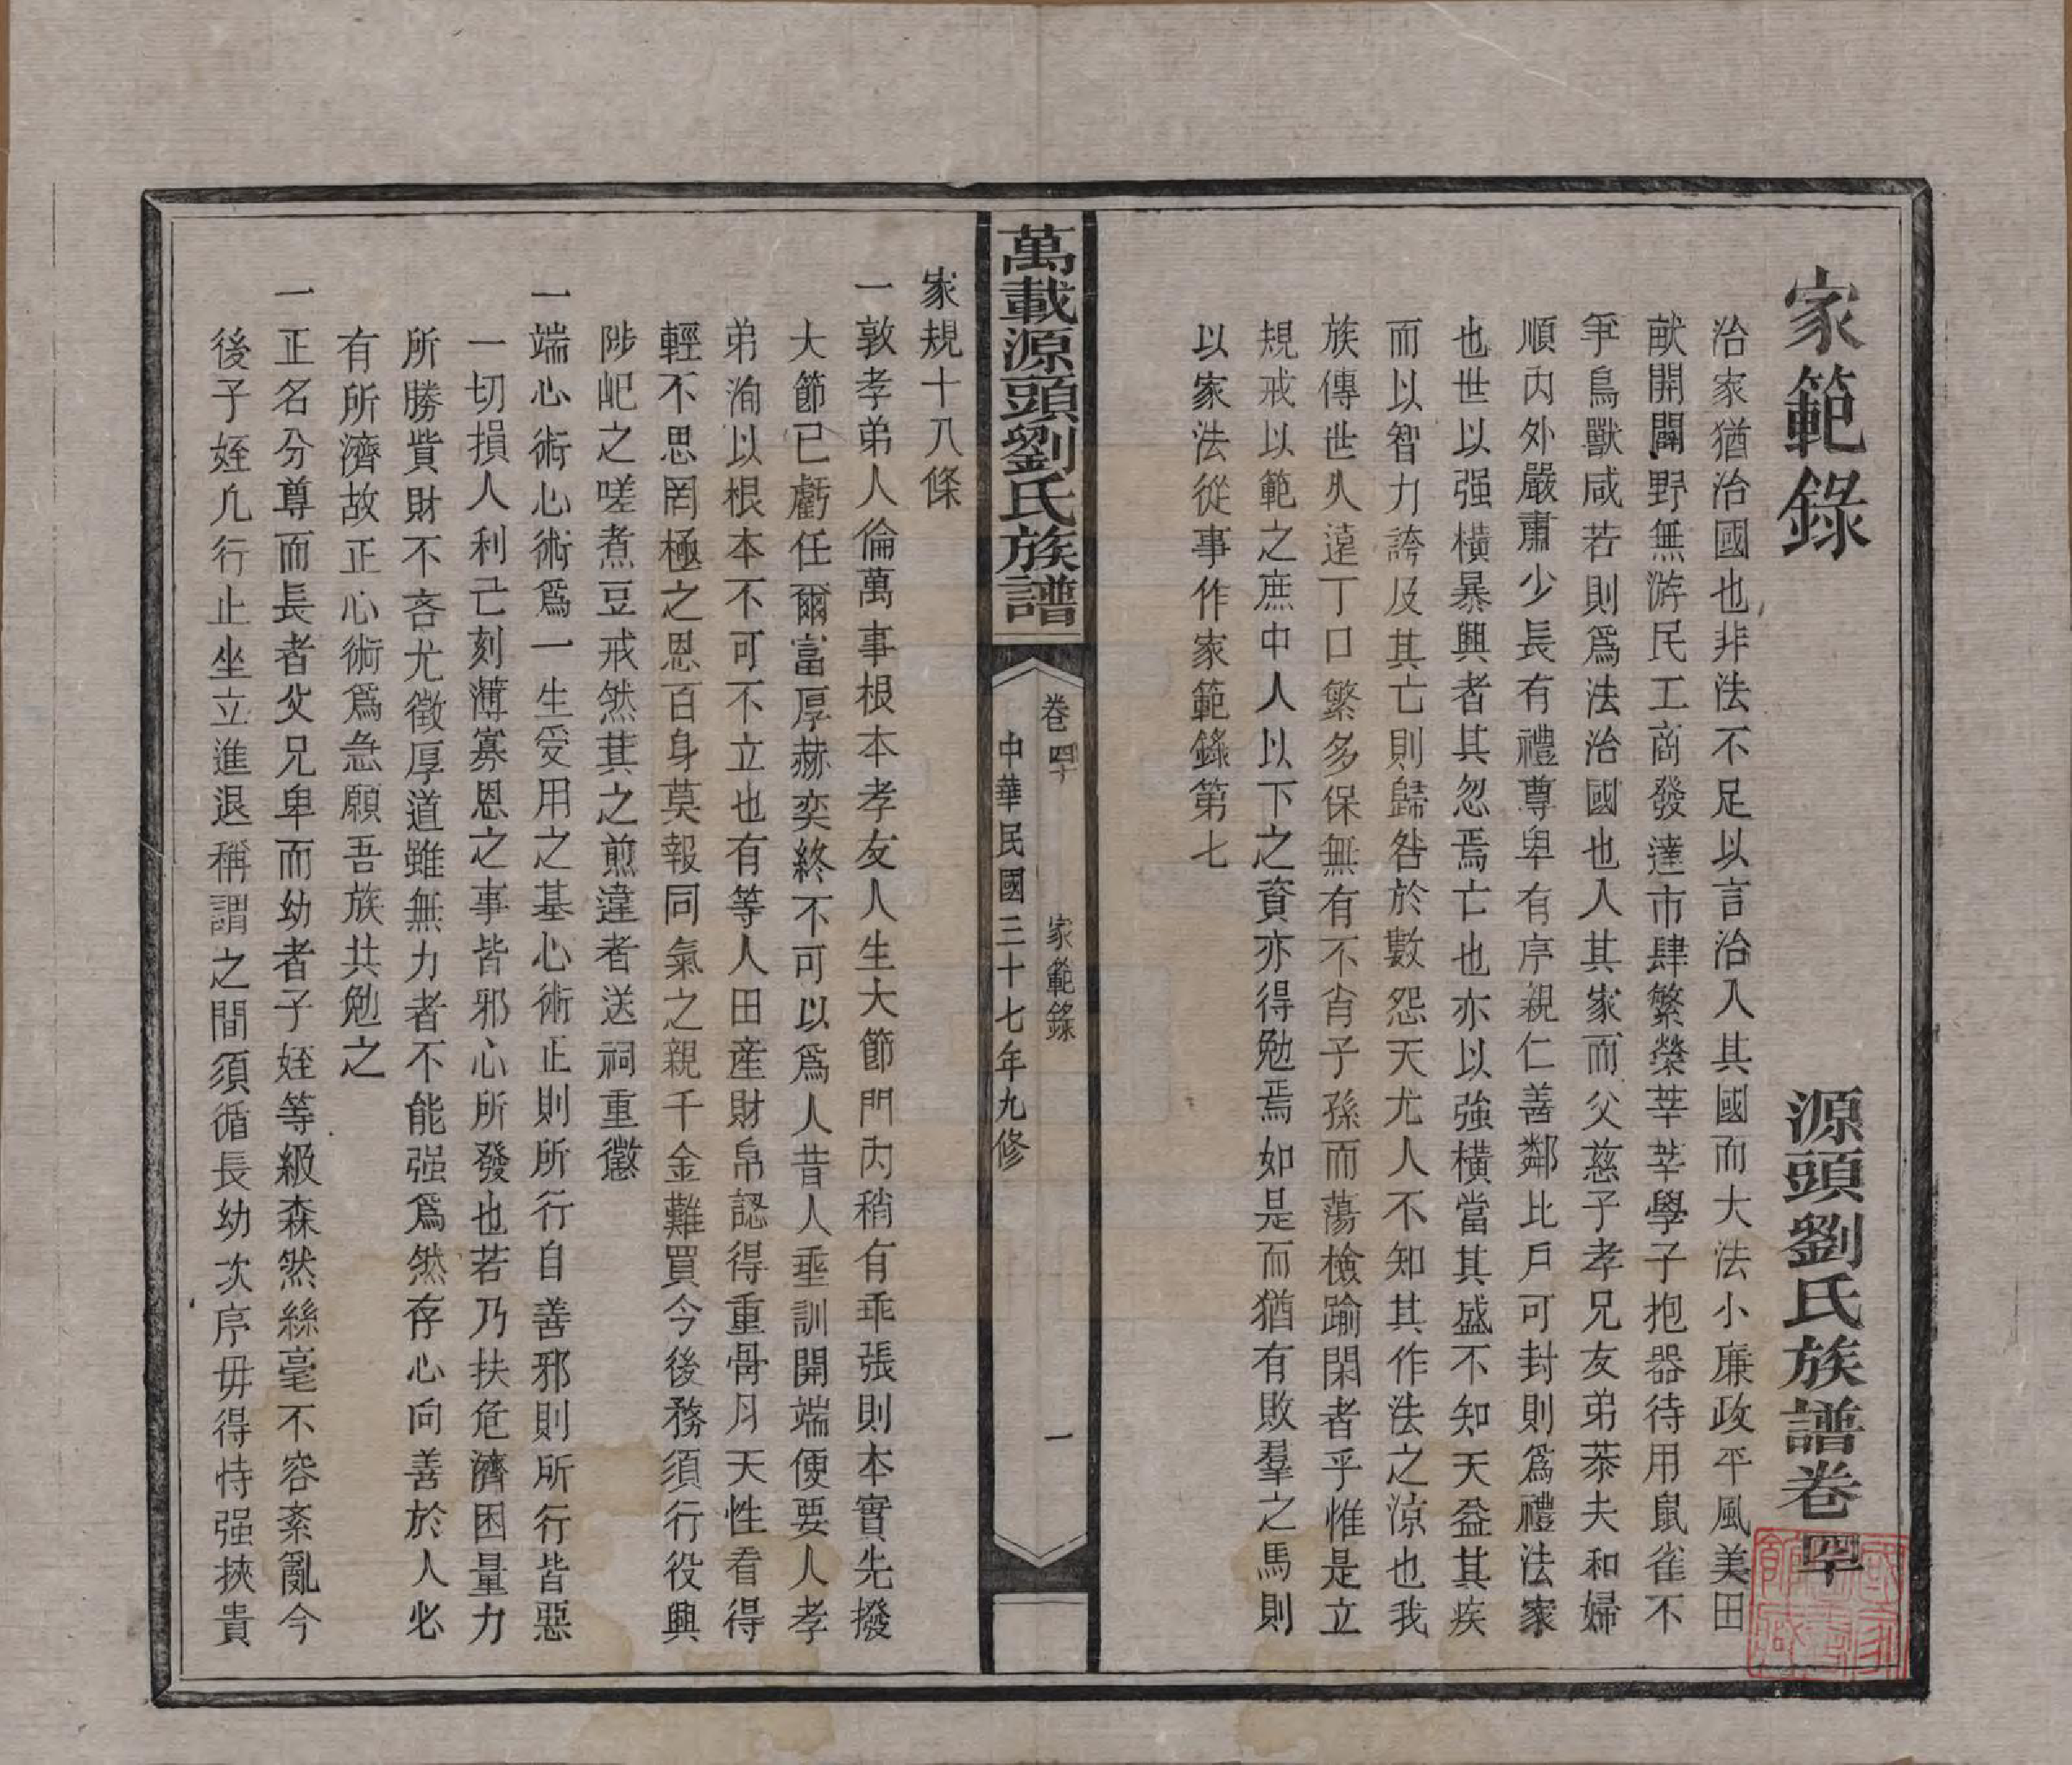 家範錄　源頭劉氏族譜卷四十
治家猶治國也非法不足以言治入其國而大法小廉政平風美田
畎開闢野無游民工商發達市肆繁榮莘莘學子抱器待用鼠雀不
爭鳥獸咸若則爲法治國也人其家而父慈子孝兄友弟恭夫和婦
順內外嚴肅少長有禮尊卑有序親仁善鄰比戶可封則爲禮法家
也世以强橫暴興者其忽焉亡也亦以強橫當其盛不知天益其疾
而以智力誇及其亡則歸咎於數怨天尤人不知其作法之涼也我
族傳世久遠丁口繁多保無有不肖子孫而蕩檢踰閑者乎惟是立
規戒以範之庶中人以下之資亦得勉焉如是而猶有敗羣之馬則
以家法從事作家範錄第七
萬載源頭劉氏族譜
卷四十　家範錄　一
中華民國三十七年九修
家規十八條
一敦孝弟人倫萬事根本孝友人生大節門內稍有乖張則本實先撥
大節已虧任爾富厚赫奕終不可以爲人昔人垂訓開端便要人孝
弟洵以根本不可不立也有等人田産財帛認得重骨月天性看得
輕不思罔極之恩百身莫報同氣之親千金難買今後務須行役興
陟屺之嗟煮豆戒然萁之煎違者送祠重懲
一端心術心術爲一生受用之基心術正則所行自善邪則所行皆惡
一切損人利己刻薄寡恩之事皆邪心所發也若乃扶危濟困量力
所勝貲財不吝尤徵厚道雖無力者不能强爲然存心向善於人必
有所濟故正心術爲急願吾族共勉之
一正名分尊而長者父兄卑而幼者子姪等級森然絲毫不容紊亂今
後子姪凢行止坐立進退稱謂之間須循長幼次序毋得恃强挾貴
國家圖書館藏